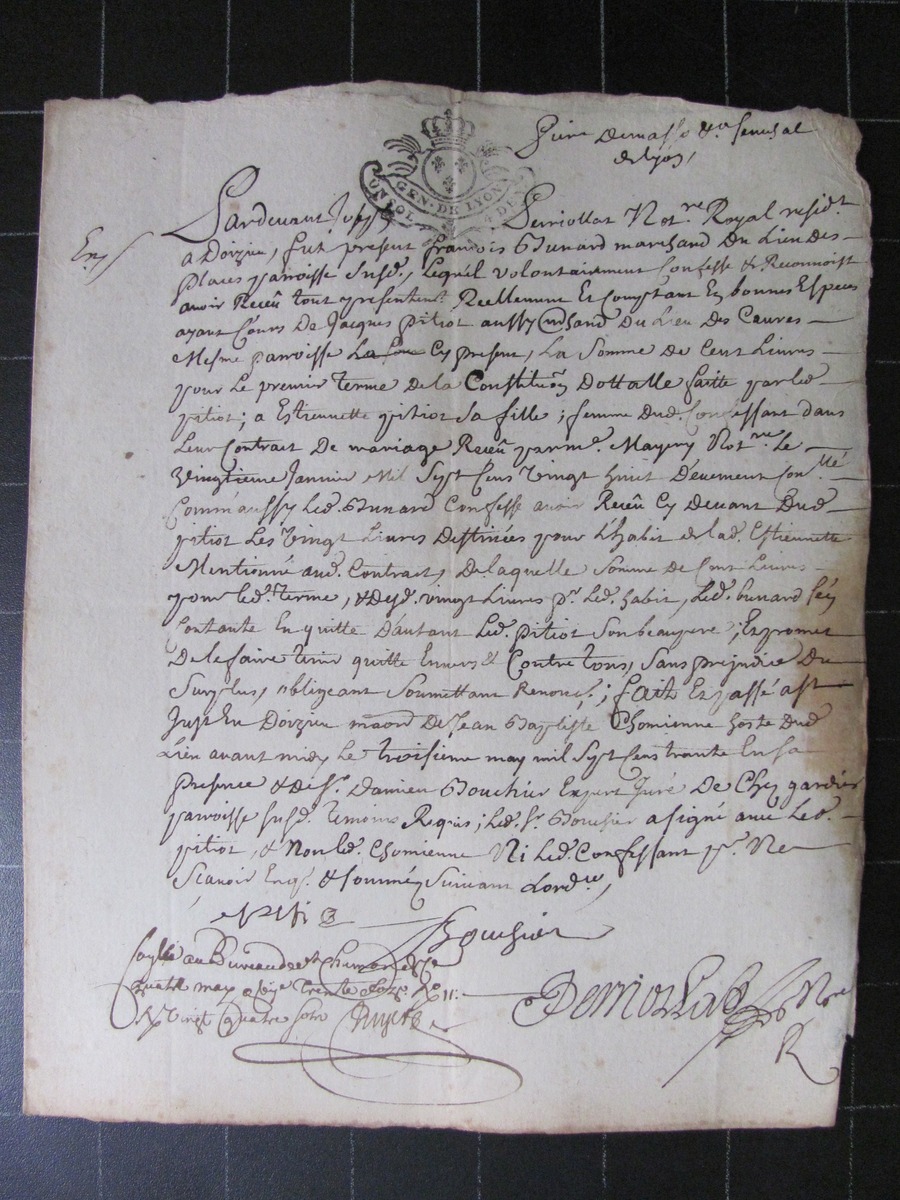 GEN. DE LYON
Lyon,
Pardevant Perriollat Not.re Royal resid.t
a Doizieu, fut present François Bunard marchand Du Lieu des
Places parroisse susd. Lequel volontairement Confesse & Reconnoist
avoir Receu tout presentem.t Reellement Et Comptant En bonnes Especes
ayant Cours De Jacques pitiot aussy Du Lieu Des Caures
Mesme parroisse Cy present, La Somme De Cent Livres
pour Le premier terme de la Constitu͠on Dottalle faitte par led.
pitiot; a Estiennette pitiot sa fille; femme Dud. Confessant dans
Leur Contrat De mariage Receu par m.e Not.re Le
vingtieme Janvier Mil Sept Cens vingt huit Deuement
Comm'aussy Led. Bunard Confesse avoir Receu Cy Devant Dud.
pitiot Les vingt Livres Destinées pour L'habit de lad. Estiennette
Mentionné aud. Contrat, De laquelle Somme de Cent Livres
pour led. terme, & desd. vingt Livres p.r Led. habit, Led. bunard
Contante En quitte D'autant Led. pitiot Son beaupere; Et promet
De le faire tenir quitte Envers & Contre tous, Sans prejudice Du
Surplus, obligeant Soumettant Renonc.; fait Et passé a St
Just En Doizieu De Jean Baptiste Chomienne hoste Dud.
Lieu avant midy Le troisieme may mil Sept Cens trente En sa
presence & de s.r Damien Bouchier Expert Juré De
parroisse susd. temoins Requis; Led. S.r Bouchier a signé avec Led.
pitiot, & Non led. Chomienne Ni Led. Confessant p.r Ne
Scavoir Enq. & sommés Suivant Lord.ce
Bouchier
au Bureau de St Chamond
quatre may trente
vingt quatre sols
Perriollat No.re
R